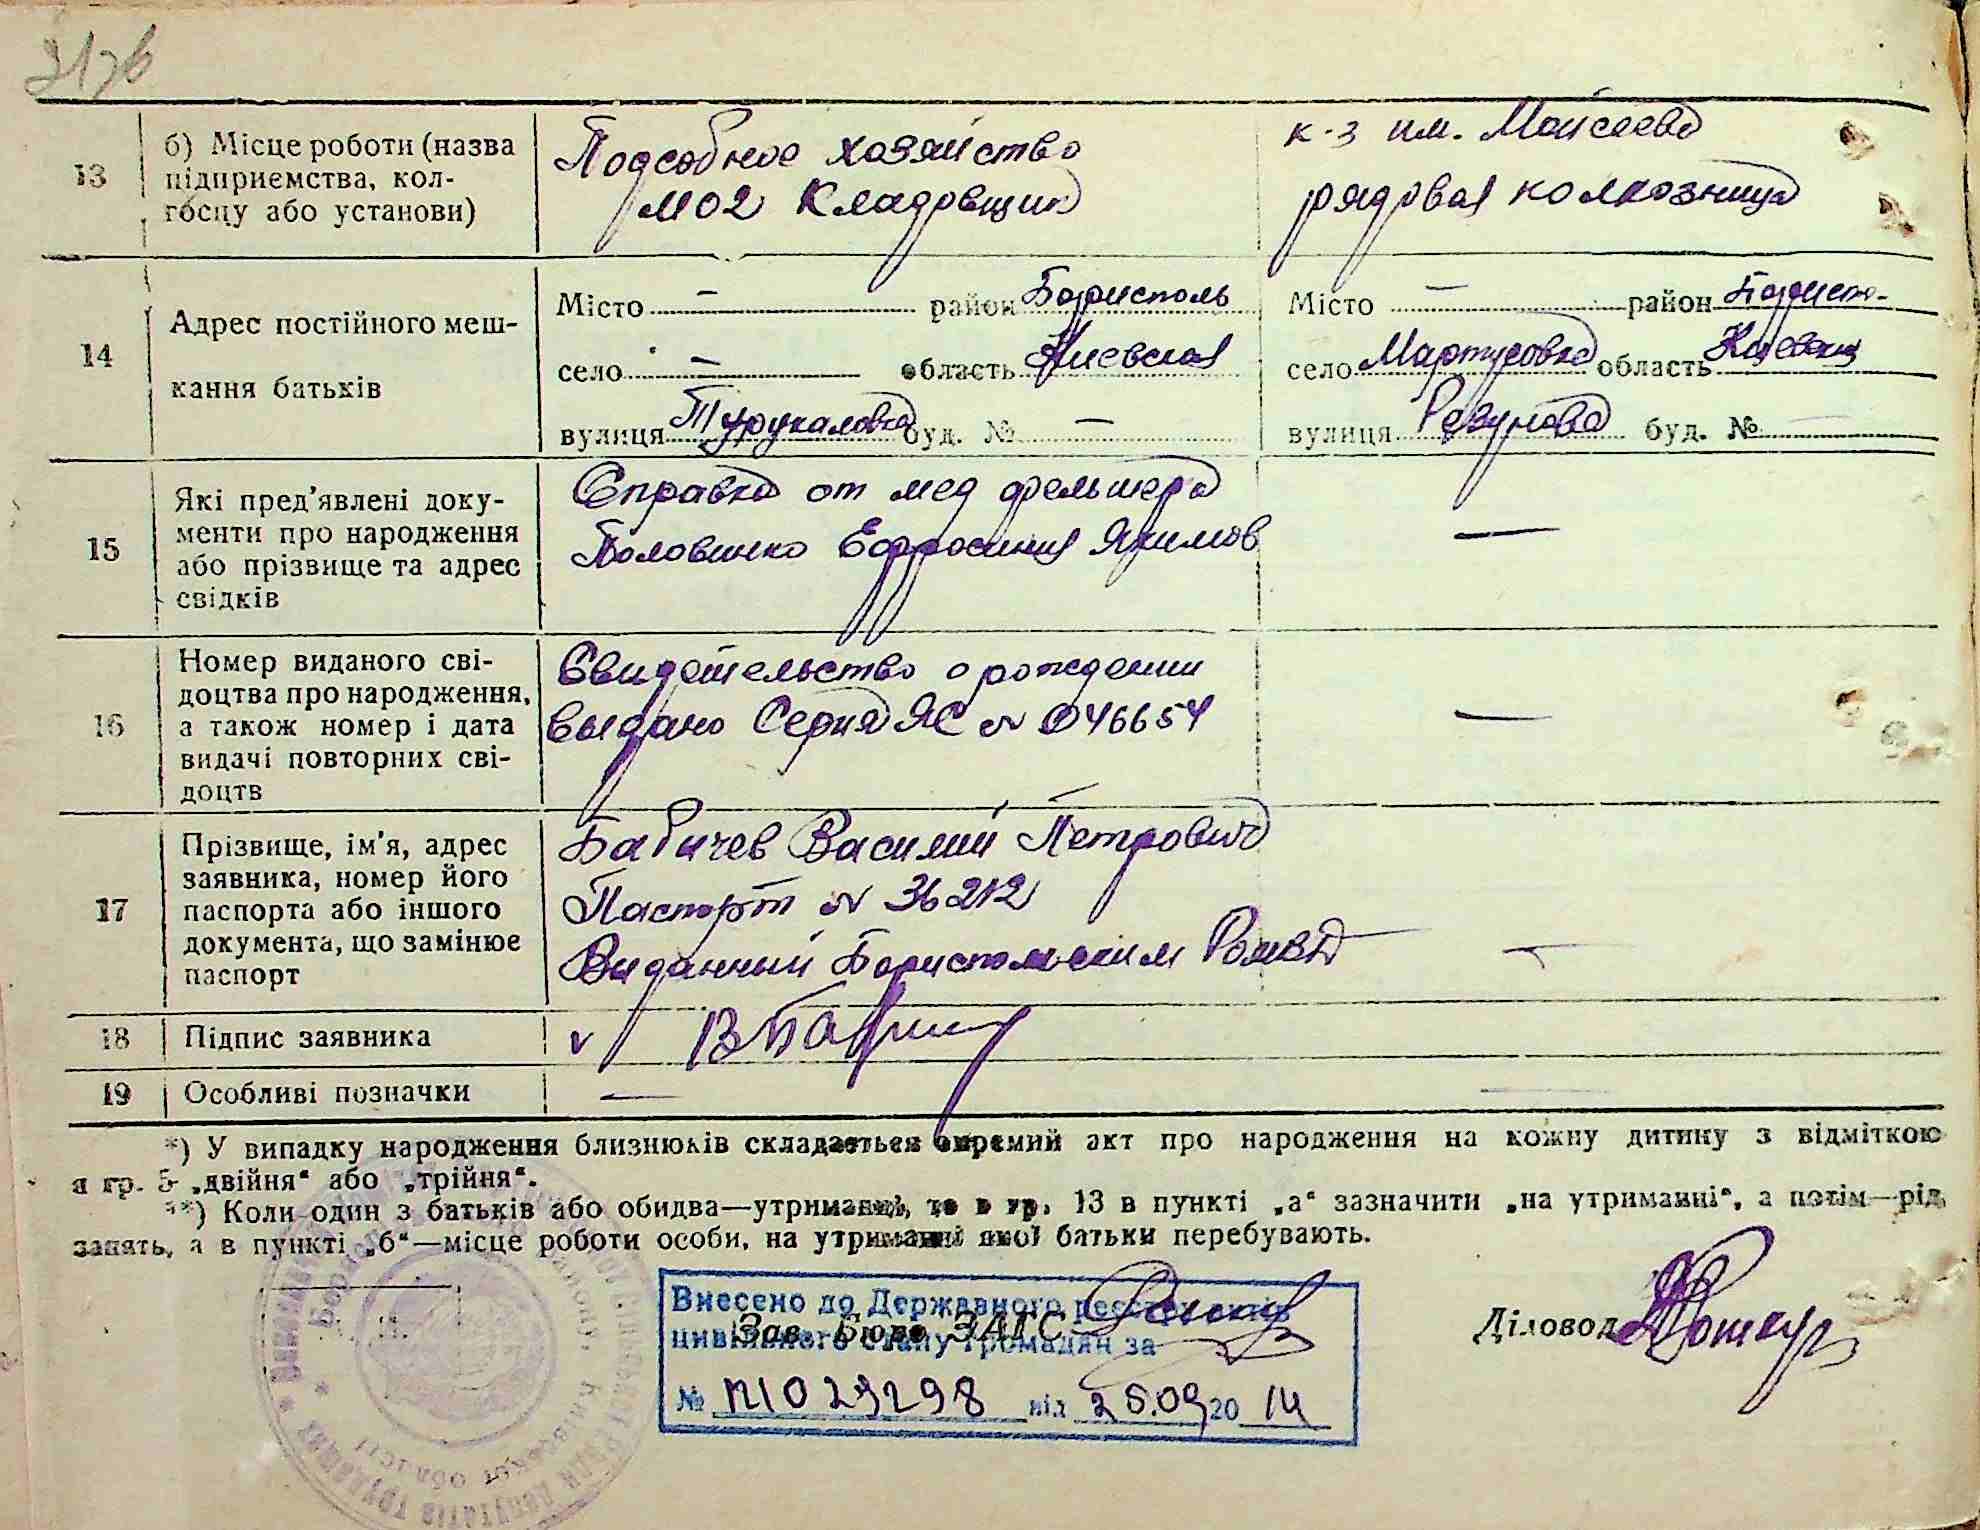 13
б) Місце роботи (назва
підприємства, кол-
госпу або установи)
Подсобное хозяйство
МО2 Кладовщик
к-з им. Мойсеева
рядовая колхозница
14
Адрес постійного меш-
кання батьків
Місто — район Борисполь
село — область Киевская
вулиця Турукаловка буд. № —
Місто — район Бористо-
село Мартусовка область Киевская
вулиця Резунова буд. № —
15
Які пред'явлені доку-
менти про народження
або прізвище та адрес
свідків
Справка от мед фельшера
Половинко Ефросиния Якимов
—
16
Номер виданого сві-
доцтва про народження,
а також номер і дата
видачі повторних сві-
доцтв
Свидетельство о рождении
выдано Серия ЯС N 046654
—
17
Прізвище, ім'я, адрес
заявника, номер його
паспорта або іншого
документа, що замінює
паспорт
Бабичев Василий Петрович
Паспорт N 36212
Виданный Бориспольским
—
18
Підпис заявника
v
19
Особливі позначки
—
*) У випадку народження близнюків складається окремий акт про народження на кожну дитину з відміткою
в гр. 5 „двійня“ або „трійня“.
**) Коли один з батьків або обидва—утриманці, то в гр. 13 в пункті „а“ зазначити „на утриманні“, а потім—рід
занять, а в пункті „б“—місце роботи особи, на утриманні якої батьки перебувають.
Внесено до Державного реєстру актів
цивільного стану громадян за
Зав. Бюро ЗАГС
Діловод
від 26.09 20 14